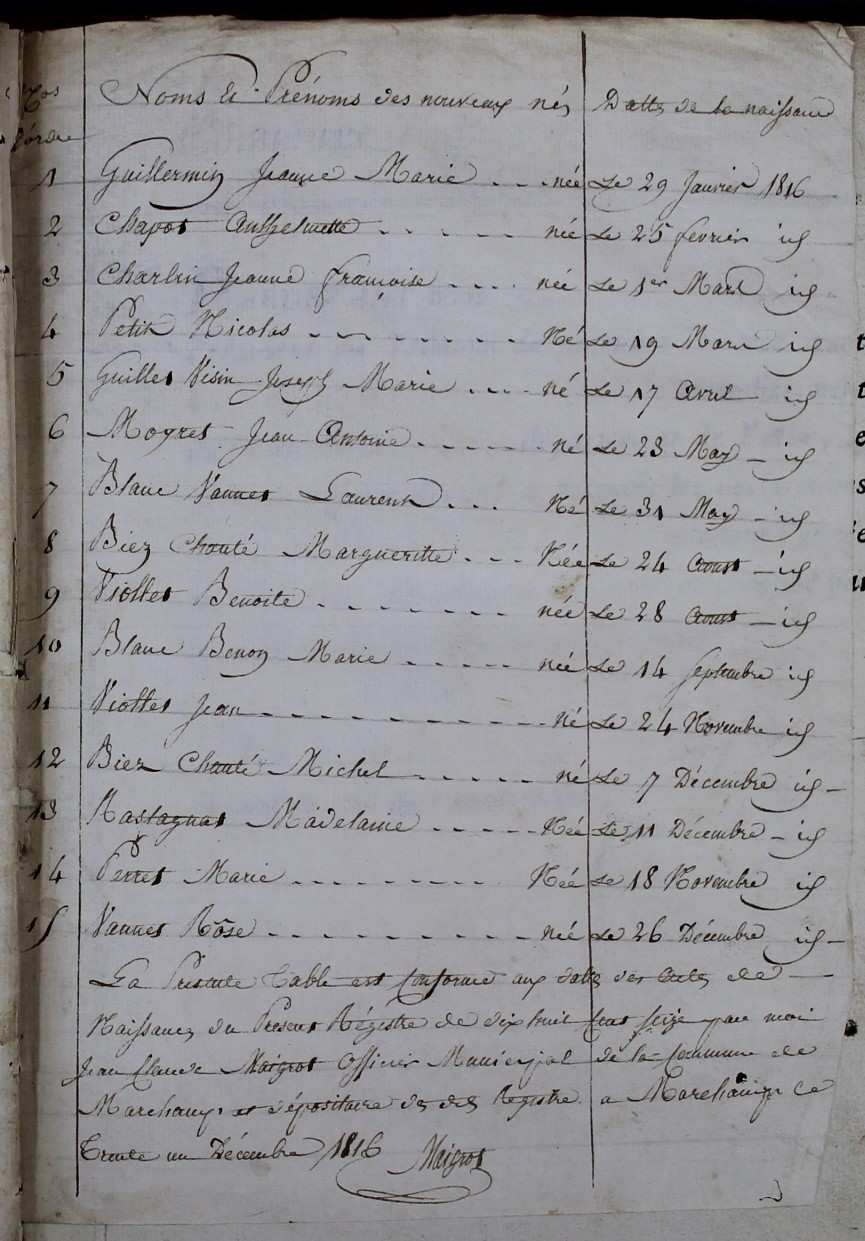 Nos d'ordre Noms et Prénoms des nouveaux nés Dattes de la naissance
1 Guillermin Jeanne Marie . . . née Le 29 Janvier 1816
2 Chapot . . . . . . née Le 25 fevrier id
3 Charlin Jeanne françoise . . . . née Le 1er Mars id
4 Petit Nicolas . . . . . . . Né Le 19 Mars id
5 Guillet Visin Joseph Marie . . . né Le 17 Avril id
6 Moyret Jean Antoine . . . . . . né Le 23 May id
7 Blanc Vannet Laurent . . . Né Le 31 May id
8 Biez Chanté Margueritte . . . Née Le 24 Aoust id
9 Viollet Benoite . . . . . . . . née Le 28 Aoust id
10 Blanc Benon Marie . . . . . . née Le 14 Septembre id
11 Viollet Jean . . . . . . . . . . . né Le 24 Novembre id
12 Biez Chanté Michel . . . . . . né Le 7 Décembre id
13 Rastagnat Madelaine . . . . . Née Le 11 Décembre id
14 Perret Marie . . . . . . . . Née Le 18 Novembre id
15 Vannet Rose . . . . . . . . . . née Le 26 Décembre id
La Presente Table est Conforme aux dattes des Actes de
Naissances du Present Régistre de dix huit Cent Seize par moi
Jean Claude Maigrot Officier Municipal de la Commune de
Marchamp et dépositaire des Registre a Marchamp ce
Trente un Décembre 1816 Maigrot